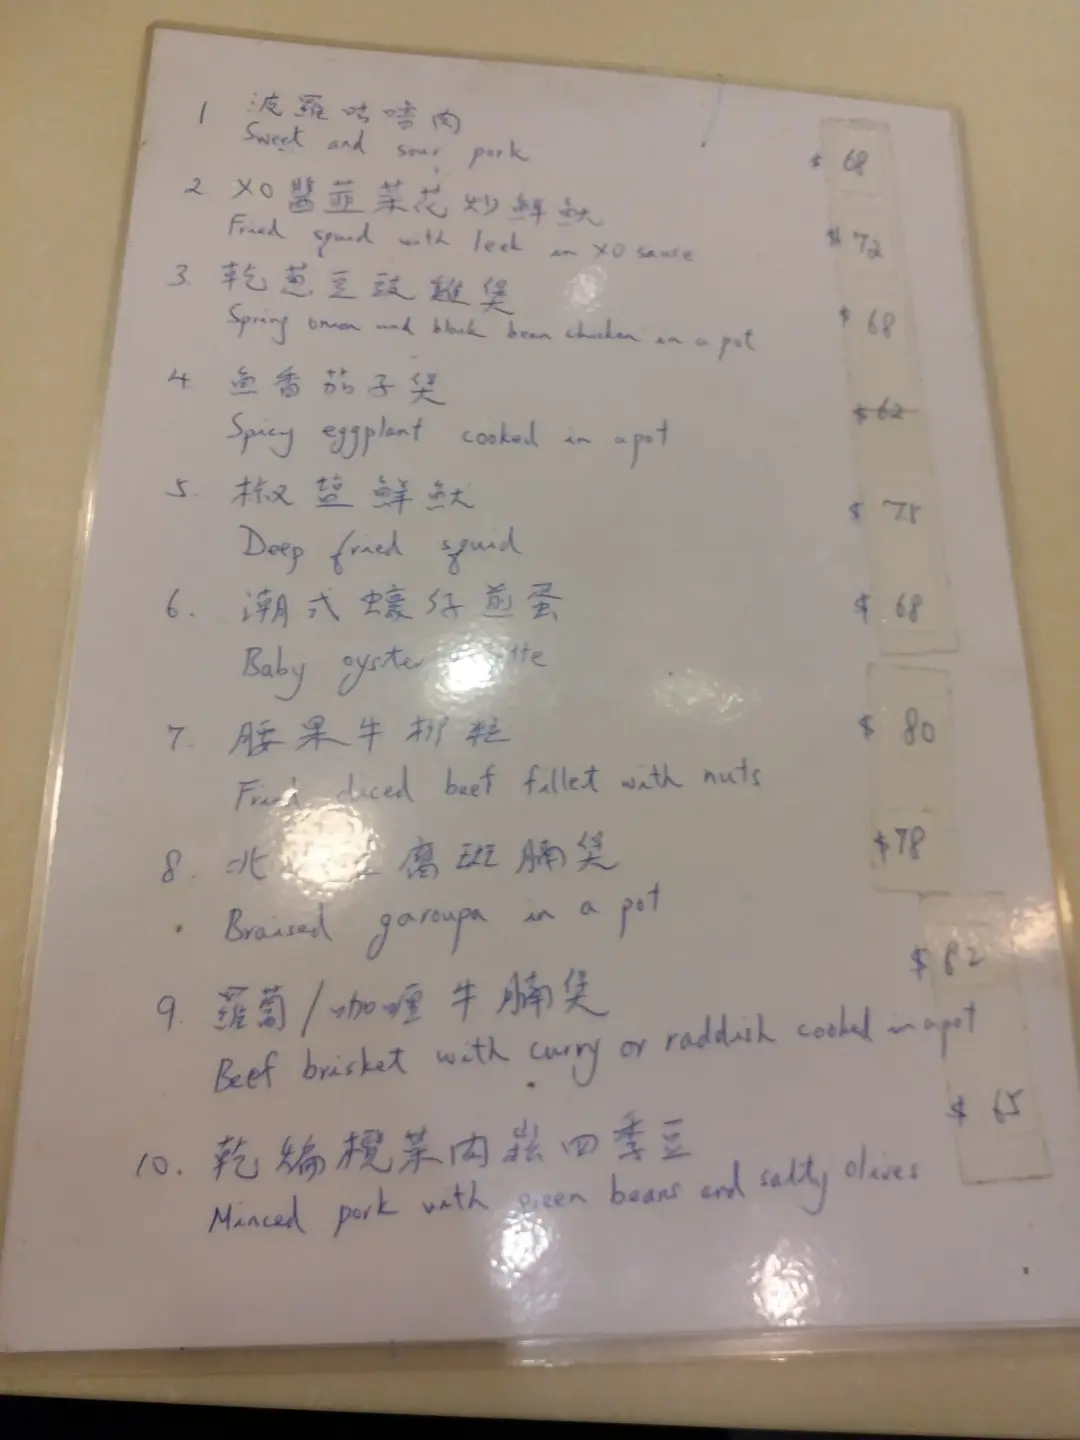 1 波羅咕嚕肉
Sweet and sour pork $ 68
2 XO醬韮菜花炒鮮魷
Fried squid with leek in XO sauce $ 72
3. 乾葱豆豉雞煲
Spring onion and black bean chicken in a pot $ 68
4. 魚香茄子煲 $62
Spicy eggplant cooked in a pot
5. 椒盐鮮魷 $ 75
Deep fried squid
6. 潮式蠔仔煎蛋 $ 68
Baby oyster
7. 腰果牛柳粒 $ 80
Fried diced beef fillet with nuts
8. 北 腐斑腩煲 $78
Braised garoupa in a pot
9. 羅蔔/咖喱牛腩煲 $82
Beef brisket with curry or raddish cooked in a pot
10. 乾煸欖菜肉崧四季豆 $ 65
Minced pork with green beans and salty olives